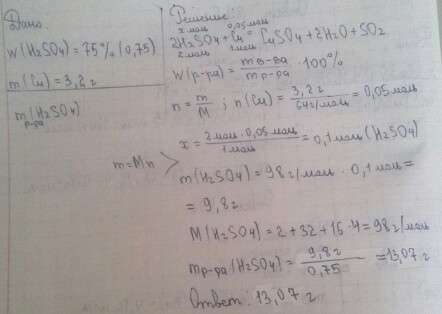 Дано:
W(H₂SO₄) = 75% (0,75)
m(Cu) = 3,2 г
m р-ра (H₂SO₄)
Решение:
x моль 0,05 моль
2H₂SO₄ + Cu = CuSO₄ + 2H₂O + SO₂
2 моль 1 моль
W(р-ра) = m в-ва / m р-ра · 100%
n = m/M ; n(Cu) = 3,2 г / 64 г/моль = 0,05 моль
x = 2 моль · 0,05 моль / 1 моль = 0,1 моль (H₂SO₄)
m = Mn
m(H₂SO₄) = 98 г/моль · 0,1 моль =
= 9,8 г
M(H₂SO₄) = 2 + 32 + 16 · 4 = 98 г/моль
m р-ра (H₂SO₄) = 9,8 г / 0,75 = 13,07 г
Ответ: 13,07 г